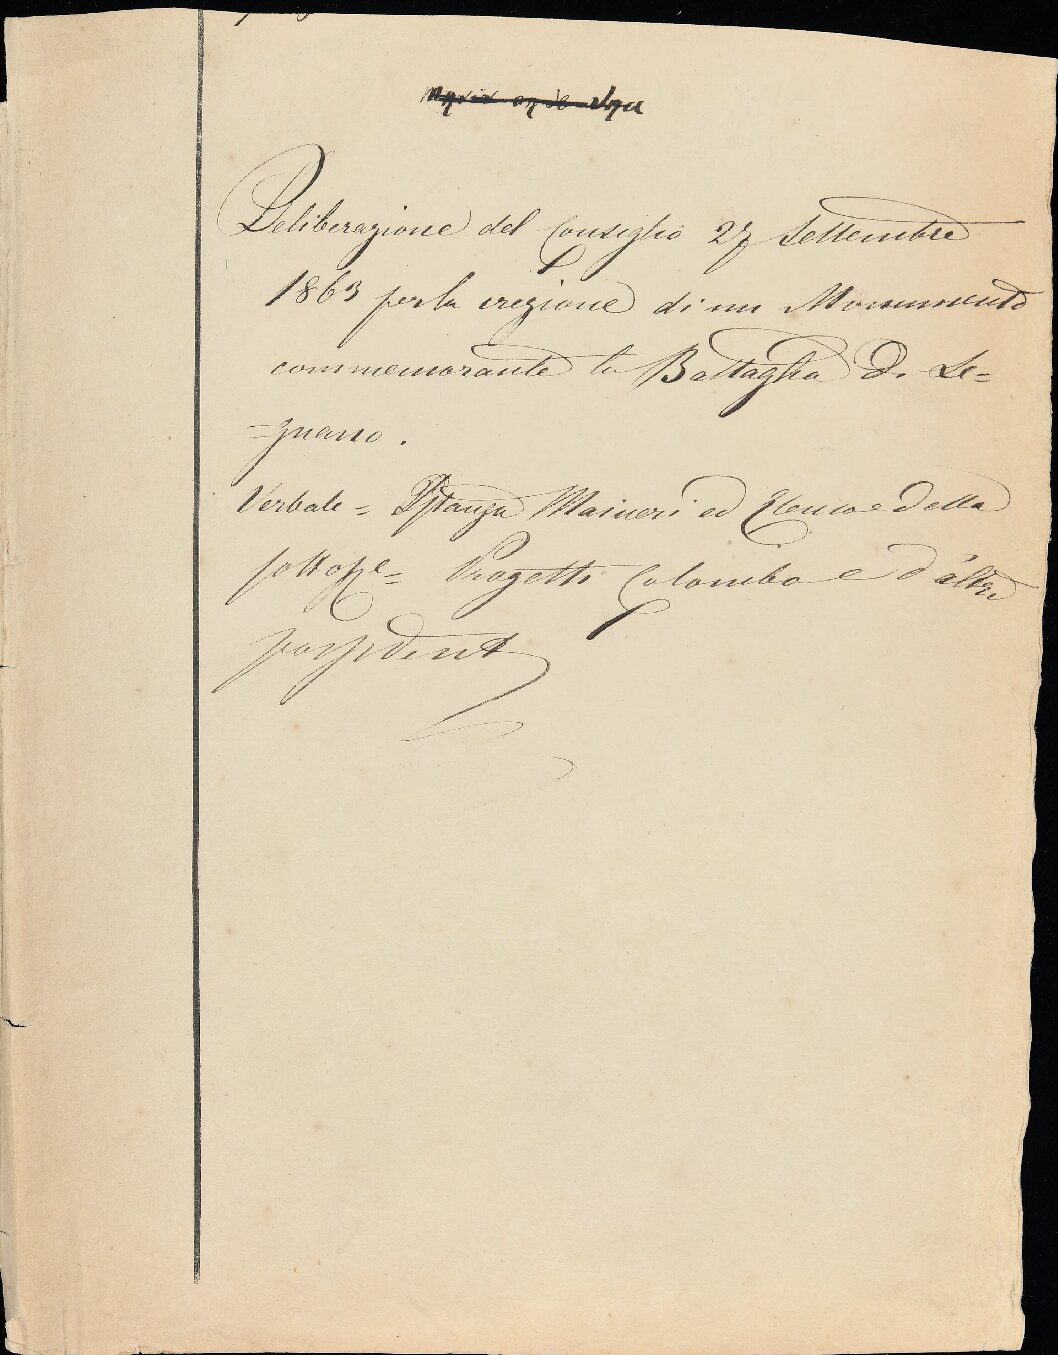 Deliberazione del Consiglio 27 Settembre
1863 per la erezione di un Monumento
commemorante la Battaglia di Le=
=gnano.
Verbale = Istanza Maineri ed Elenco della
sottosne= Progetti Colombo e d'altri